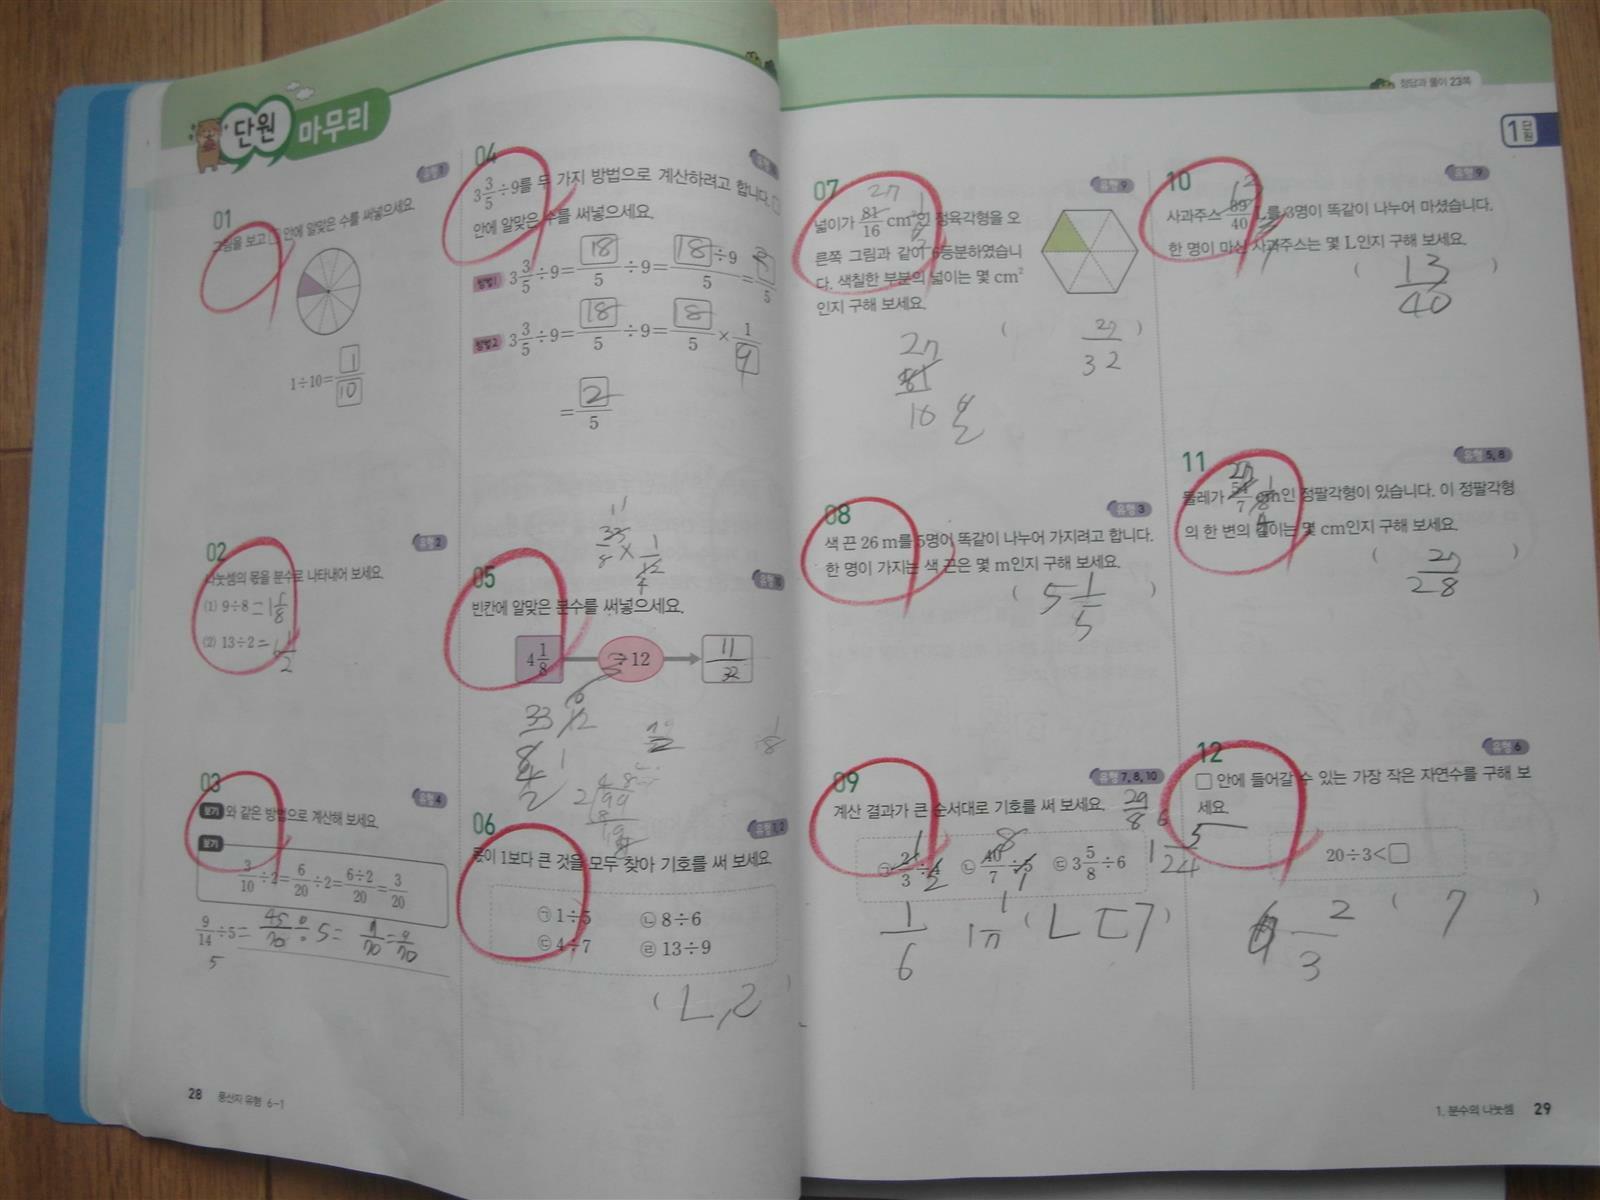 단원 마무리
01
유형 1
그림을 보고 □ 안에 알맞은 수를 써넣으세요.
1÷10= 1/10
02
유형 2
나눗셈의 몫을 분수로 나타내어 보세요.
(1) 9÷8 = 1 1/8
(2) 13÷2 = 6 1/2
03
유형 4
보기 와 같은 방법으로 계산해 보세요.
보기
3/10 ÷2= 6/20 ÷2= 6÷2/20 = 3/20
9/14 ÷5= 45/70 ÷ 5 = 9/70 = 9/70
5
04
3 3/5 ÷9를 두 가지 방법으로 계산하려고 합니다. □
안에 알맞은 수를 써넣으세요.
방법1 3 3/5 ÷9= 18/5 ÷9= 18÷9/5 = /5
방법2 3 3/5 ÷9= 18/5 ÷9= 18/5 × 1/9
= 2/5
11
33/8 × 1/12
4
05
유형 10
빈칸에 알맞은 분수를 써넣으세요.
4 1/8 ÷12 11/32
33 12
8 1
4
2
06
유형 1, 2
몫이 1보다 큰 것을 모두 찾아 기호를 써 보세요.
㉠ 1÷5 ㉡ 8÷6
㉢ 4÷7 ㉣ 13÷9
( ㄴ, ㄹ )
28 풍산자 유형 6-1
정답과 풀이 23쪽
1단원
07
유형 9
27 1
넓이가 81/16 cm²인 정육각형을 오
른쪽 그림과 같이 6등분하였습니
다. 색칠한 부분의 넓이는 몇 cm²
인지 구해 보세요.
( 27/32 )
27
81
16
08
유형 3
색 끈 26 m를 5명이 똑같이 나누어 가지려고 합니다.
한 명이 가지는 색 끈은 몇 m인지 구해 보세요.
( 5 1/5 )
09
유형 7, 8, 10
계산 결과가 큰 순서대로 기호를 써 보세요.
29/8 6
1 8
㉠ 2/3 ÷4 ㉡ 40/7 ÷5 ㉢ 3 5/8 ÷6
2 1
1/6 1 1/7 ( ㄴ ㄷ ㄱ )
10
유형 9
사과주스 39/40 L를 3명이 똑같이 나누어 마셨습니다.
한 명이 마신 사과주스는 몇 L인지 구해 보세요.
( 13/40 )
11
유형 5, 8
27 1
둘레가 54/7 cm인 정팔각형이 있습니다. 이 정팔각형
의 한 변의 길이는 몇 cm인지 구해 보세요.
( 27/28 )
12
유형 6
□ 안에 들어갈 수 있는 가장 작은 자연수를 구해 보
세요.
5/24
20÷3<□
6 2/3 ( 7 )
1. 분수의 나눗셈 29